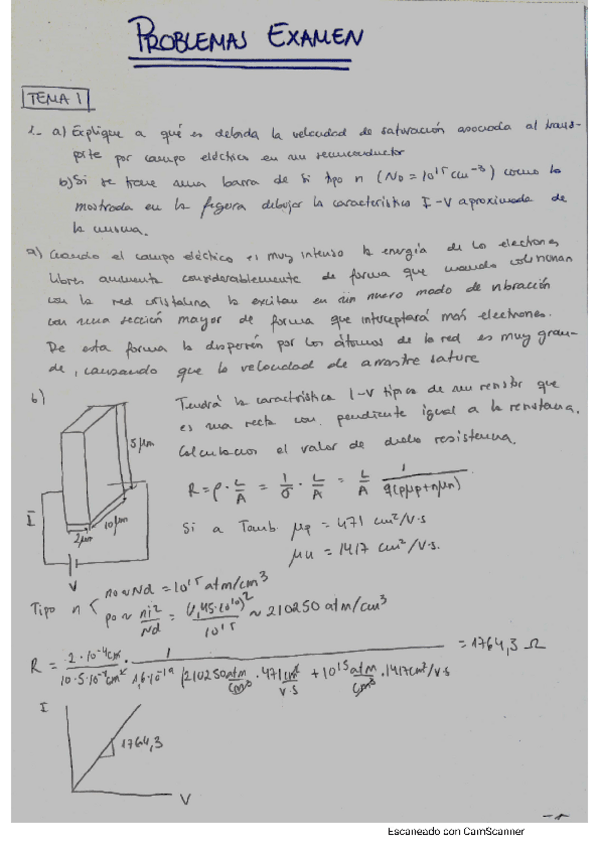 PROBLEMAS EXAMEN
TEMA 1
1.- a) Explique a qué es debida la velocidad de saturación asociada al trans-
porte por campo eléctrico en un semiconductor
b) Si se tiene una barra de Si tipo n (ND = 10^15 cm^-3) como la
mostrada en la figura dibujar la característica I-V aproximada de
la misma.
a) Cuando el campo eléctrico es muy intenso la energía de los electrones
libres aumenta considerablemente de forma que cuando colisionan
con la red cristalina la excitan en un nuevo modo de vibración
con una sección mayor de forma que interceptará más electrones.
De esta forma la dispersión por los átomos de la red es muy gran-
de, causando que la velocidad de arrastre sature
b)
Tendrá la característica I-V típica de un resistor que
es una recta con pendiente igual a la resistencia.
Calculamos el valor de dicha resistencia.
5 μm
10 μm
2 μm
I
V
R = ρ · L/A = 1/σ · L/A = L/A · 1/q(pμp+nμn)
Si a Tamb. μp = 471 cm²/V·s
μn = 1417 cm²/V·s.
Tipo n { no ≈ Nd = 10^15 atm/cm³
po ≈ ni²/Nd = (1,45·10^10)²/10^15 ≈ 210250 atm/cm³
R = 2·10^-4 cm/10·5·10^-8 cm² · 1/1,6·10^-19 (210250 atm/cm³ · 471 cm²/V·s + 10^15 atm/cm³ · 1417 cm²/V·s = 1764,3 Ω
I
1764,3
V
Escaneado con CamScanner